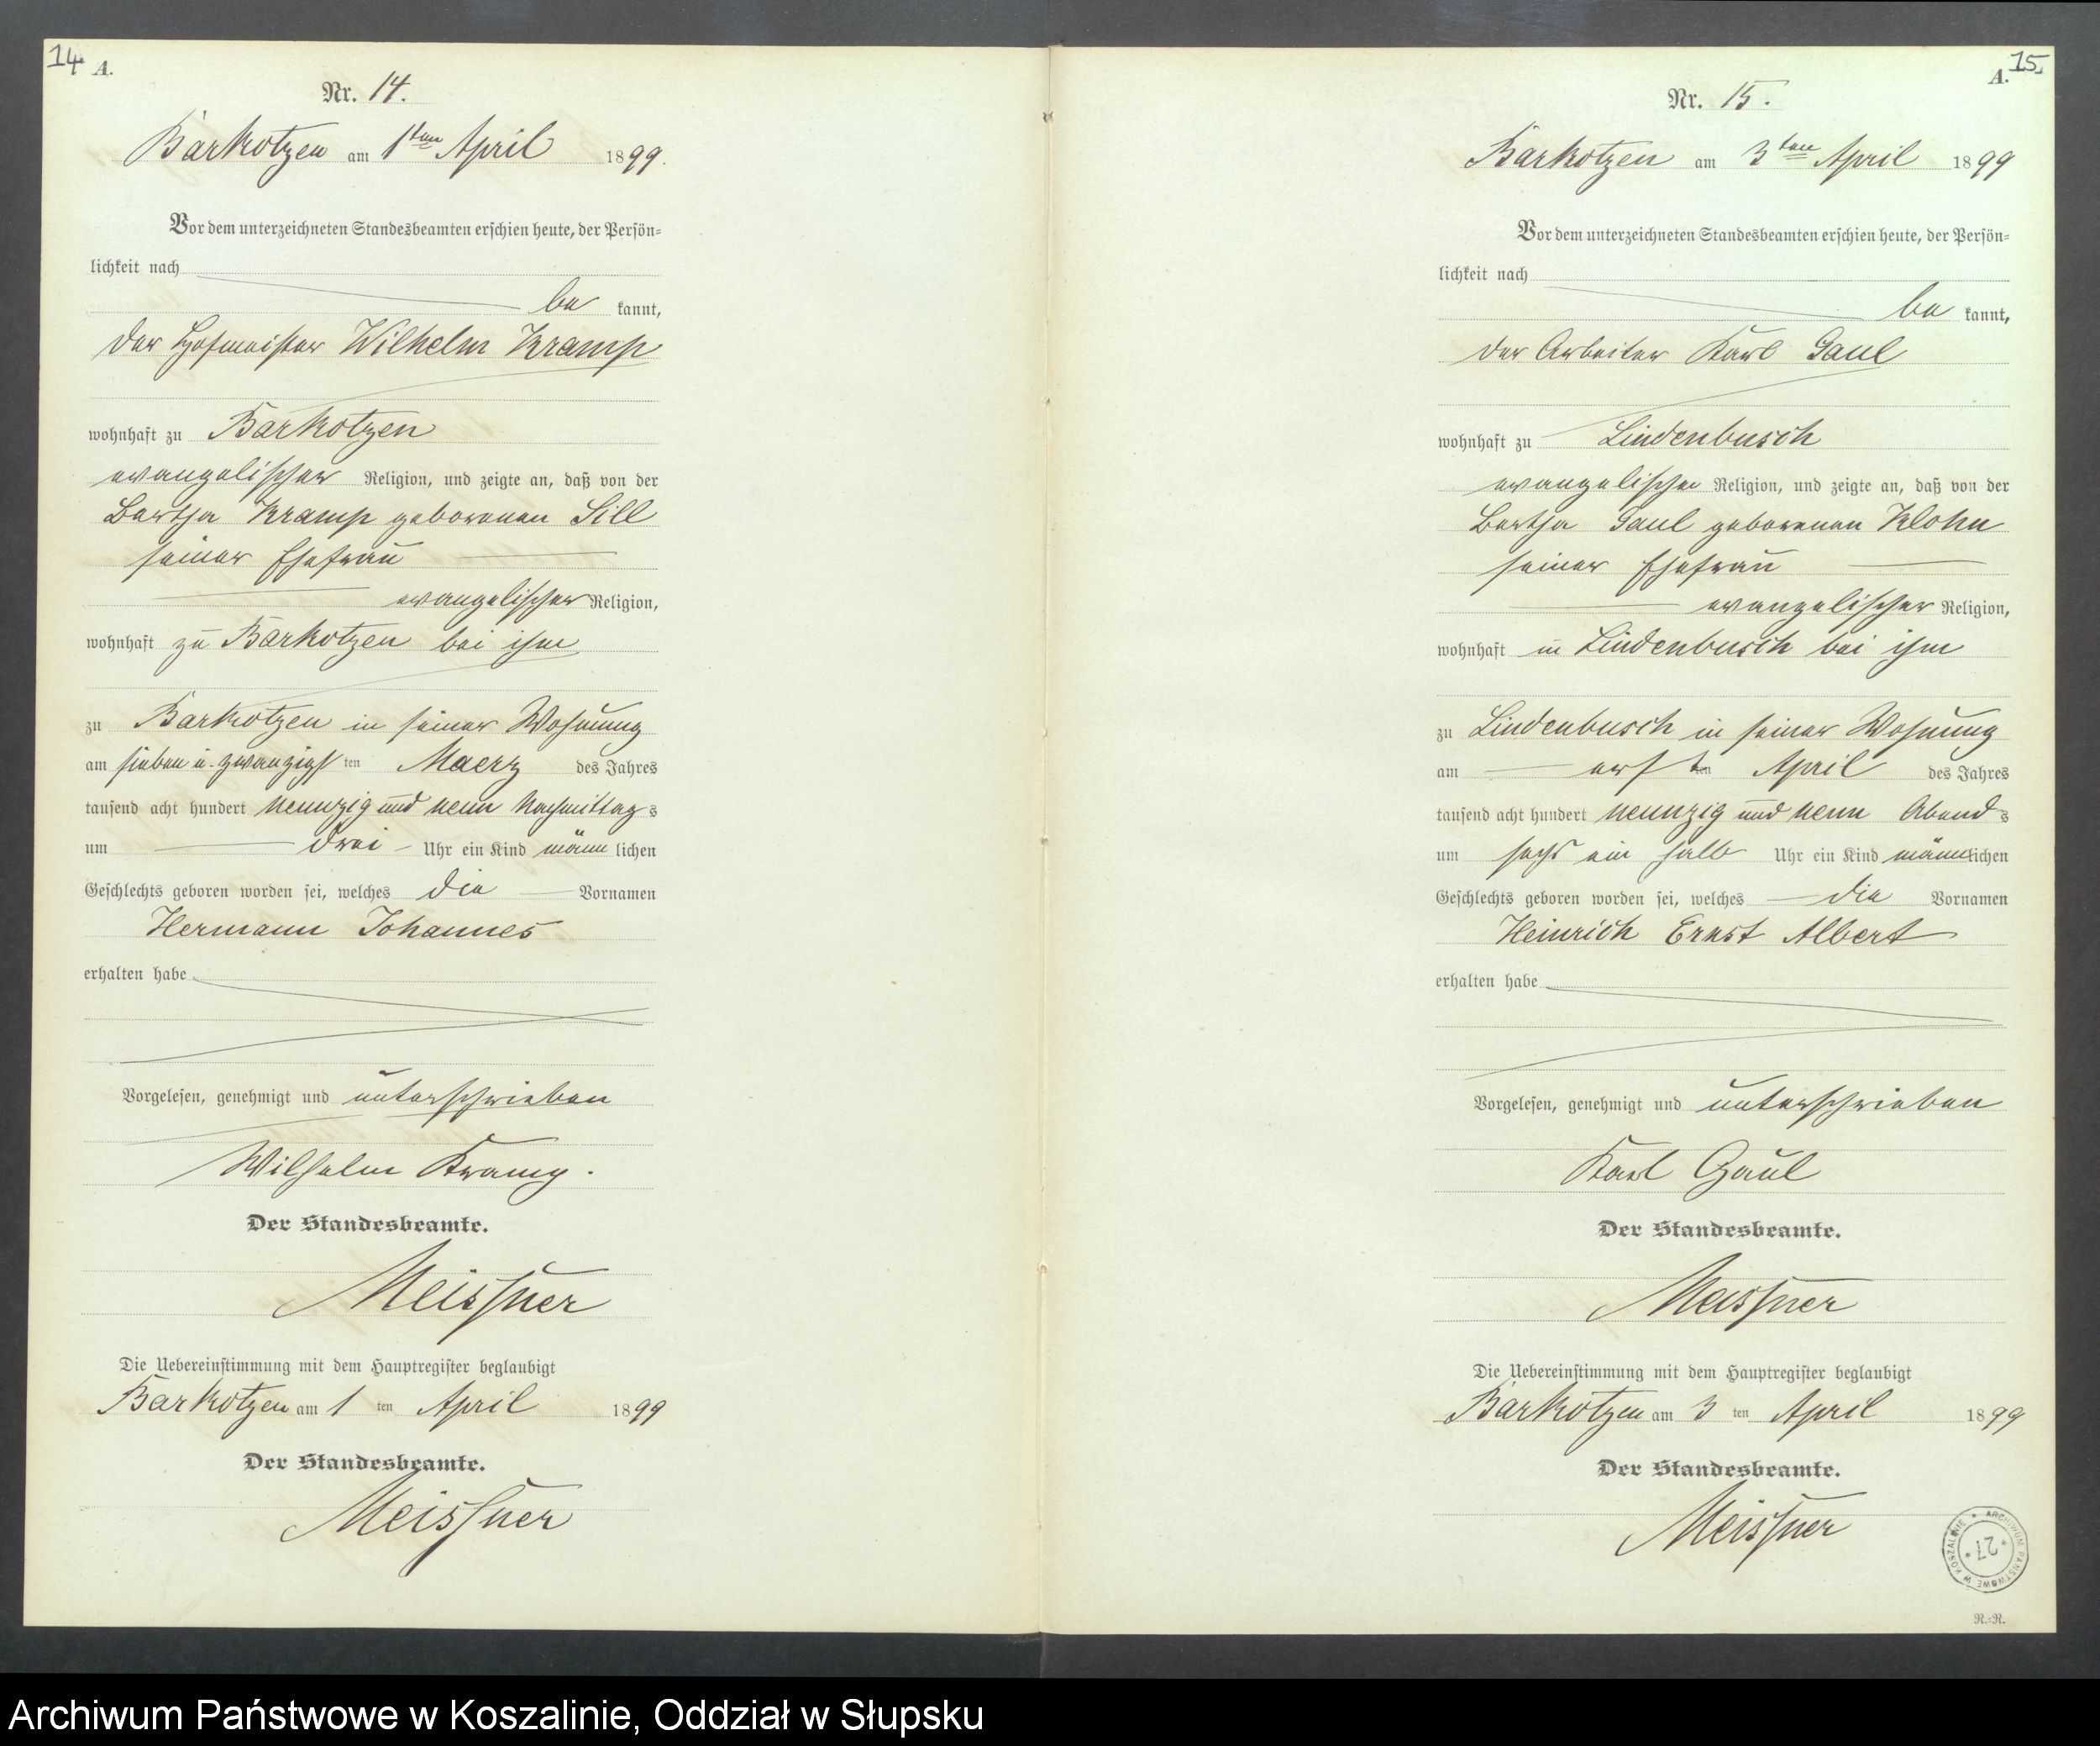 14
A.
Nr. 14.
Barkotzen am 1ten April 1899.
Vor dem unterzeichneten Standesbeamten erschien heute, der Persön-
lichkeit nach
be kannt,
der Hofmeister Wilhelm Kramp
wohnhaft zu Barkotzen
evangelischer Religion, und zeigte an, daß von der
Bertha Kramp geborenen Sill
seiner Ehefrau
evangelischer Religion,
wohnhaft zu Barkotzen bei ihm
zu Barkotzen in seiner Wohnung
am sieben u. zwanzigs ten Maerz des Jahres
tausend acht hundert neunzig und neun Nachmittag s
um drei Uhr ein Kind männ lichen
Geschlechts geboren worden sei, welches die Vornamen
Hermann Johannes
erhalten habe
Vorgelesen, genehmigt und unterschrieben
Wilhelm Kramp.
Der Standesbeamte.
Meissner
Die Uebereinstimmung mit dem Hauptregister beglaubigt
Barkotzen am 1 ten April 1899
Der Standesbeamte.
Meissner
15
A.
Nr. 15.
Barkotzen am 3ten April 1899
Vor dem unterzeichneten Standesbeamten erschien heute, der Persön-
lichkeit nach
be kannt,
der Arbeiter Karl Gaul
wohnhaft zu Lindenbusch
evangelischer Religion, und zeigte an, daß von der
Bertha Gaul geborenen Klohn
seiner Ehefrau
evangelischer Religion,
wohnhaft in Lindenbusch bei ihm
zu Lindenbusch in seiner Wohnung
am ersten April des Jahres
tausend acht hundert neunzig und neun Abend s
um sechs ein halb Uhr ein Kind männlichen
Geschlechts geboren worden sei, welches die Vornamen
Heinrich Ernst Albert
erhalten habe
Vorgelesen, genehmigt und unterschrieben
Karl Gaul
Der Standesbeamte.
Meissner
Die Uebereinstimmung mit dem Hauptregister beglaubigt
Barkotzen am 3 ten April 1899
Der Standesbeamte.
Meissner
ARCHIWUM PAŃSTWOWE W KOSZALINIE
* 27 *
R.-R.
Archiwum Państwowe w Koszalinie, Oddział w Słupsku